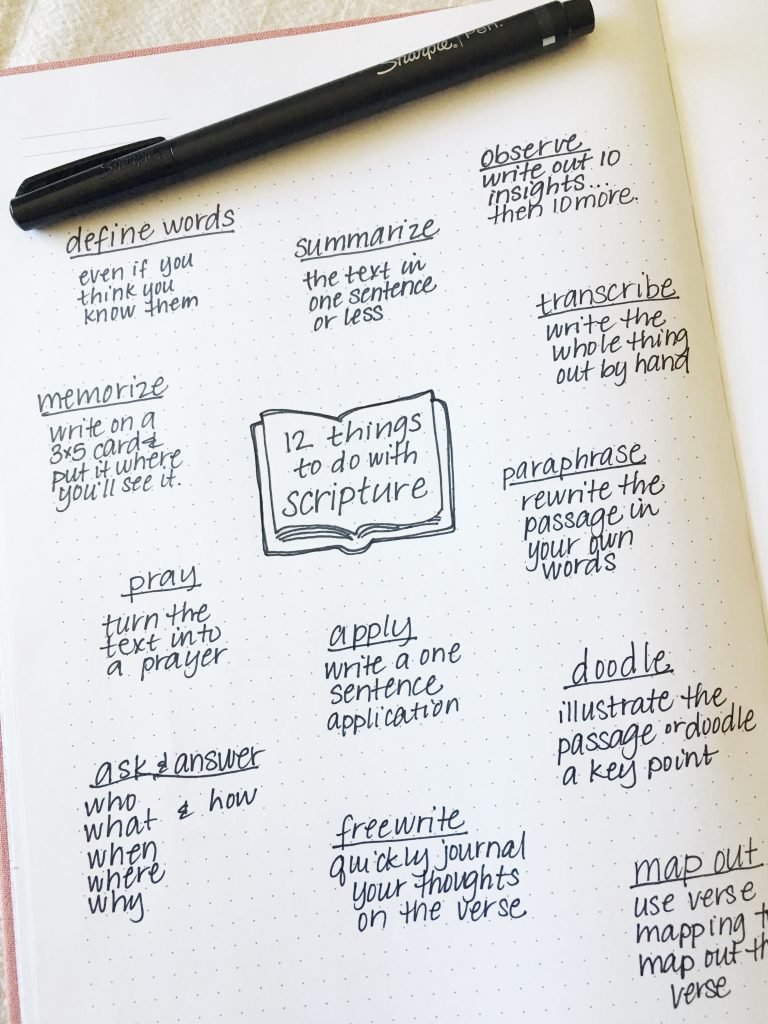 Sharpie. Pen.
Sharpie
observe
write out 10
insights...
then 10 more.
define words
even if you
think you
know them
summarize
the text in
one sentence
or less
transcribe
write the
whole thing
out by hand
memorize
write on a
3x5 card &
put it where
you'll see it.
12 things
to do with
scripture
paraphrase
rewrite the
passage in
your own
words
pray
turn the
text into
a prayer
apply
write a one
sentence
application
doodle
illustrate the
passage or doodle
a key point
ask & answer
who
what & how
when
where
why
freewrite
quickly journal
your thoughts
on the verse
map out
use verse
mapping
map out
verse